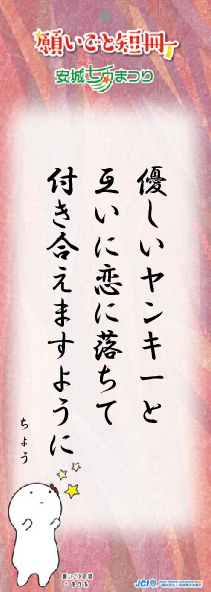 願いごと短冊
安城七夕まつり
優しいヤンキーと
互いに恋に落ちて
付き合えますように
ちょう
願いごと短冊
JCI